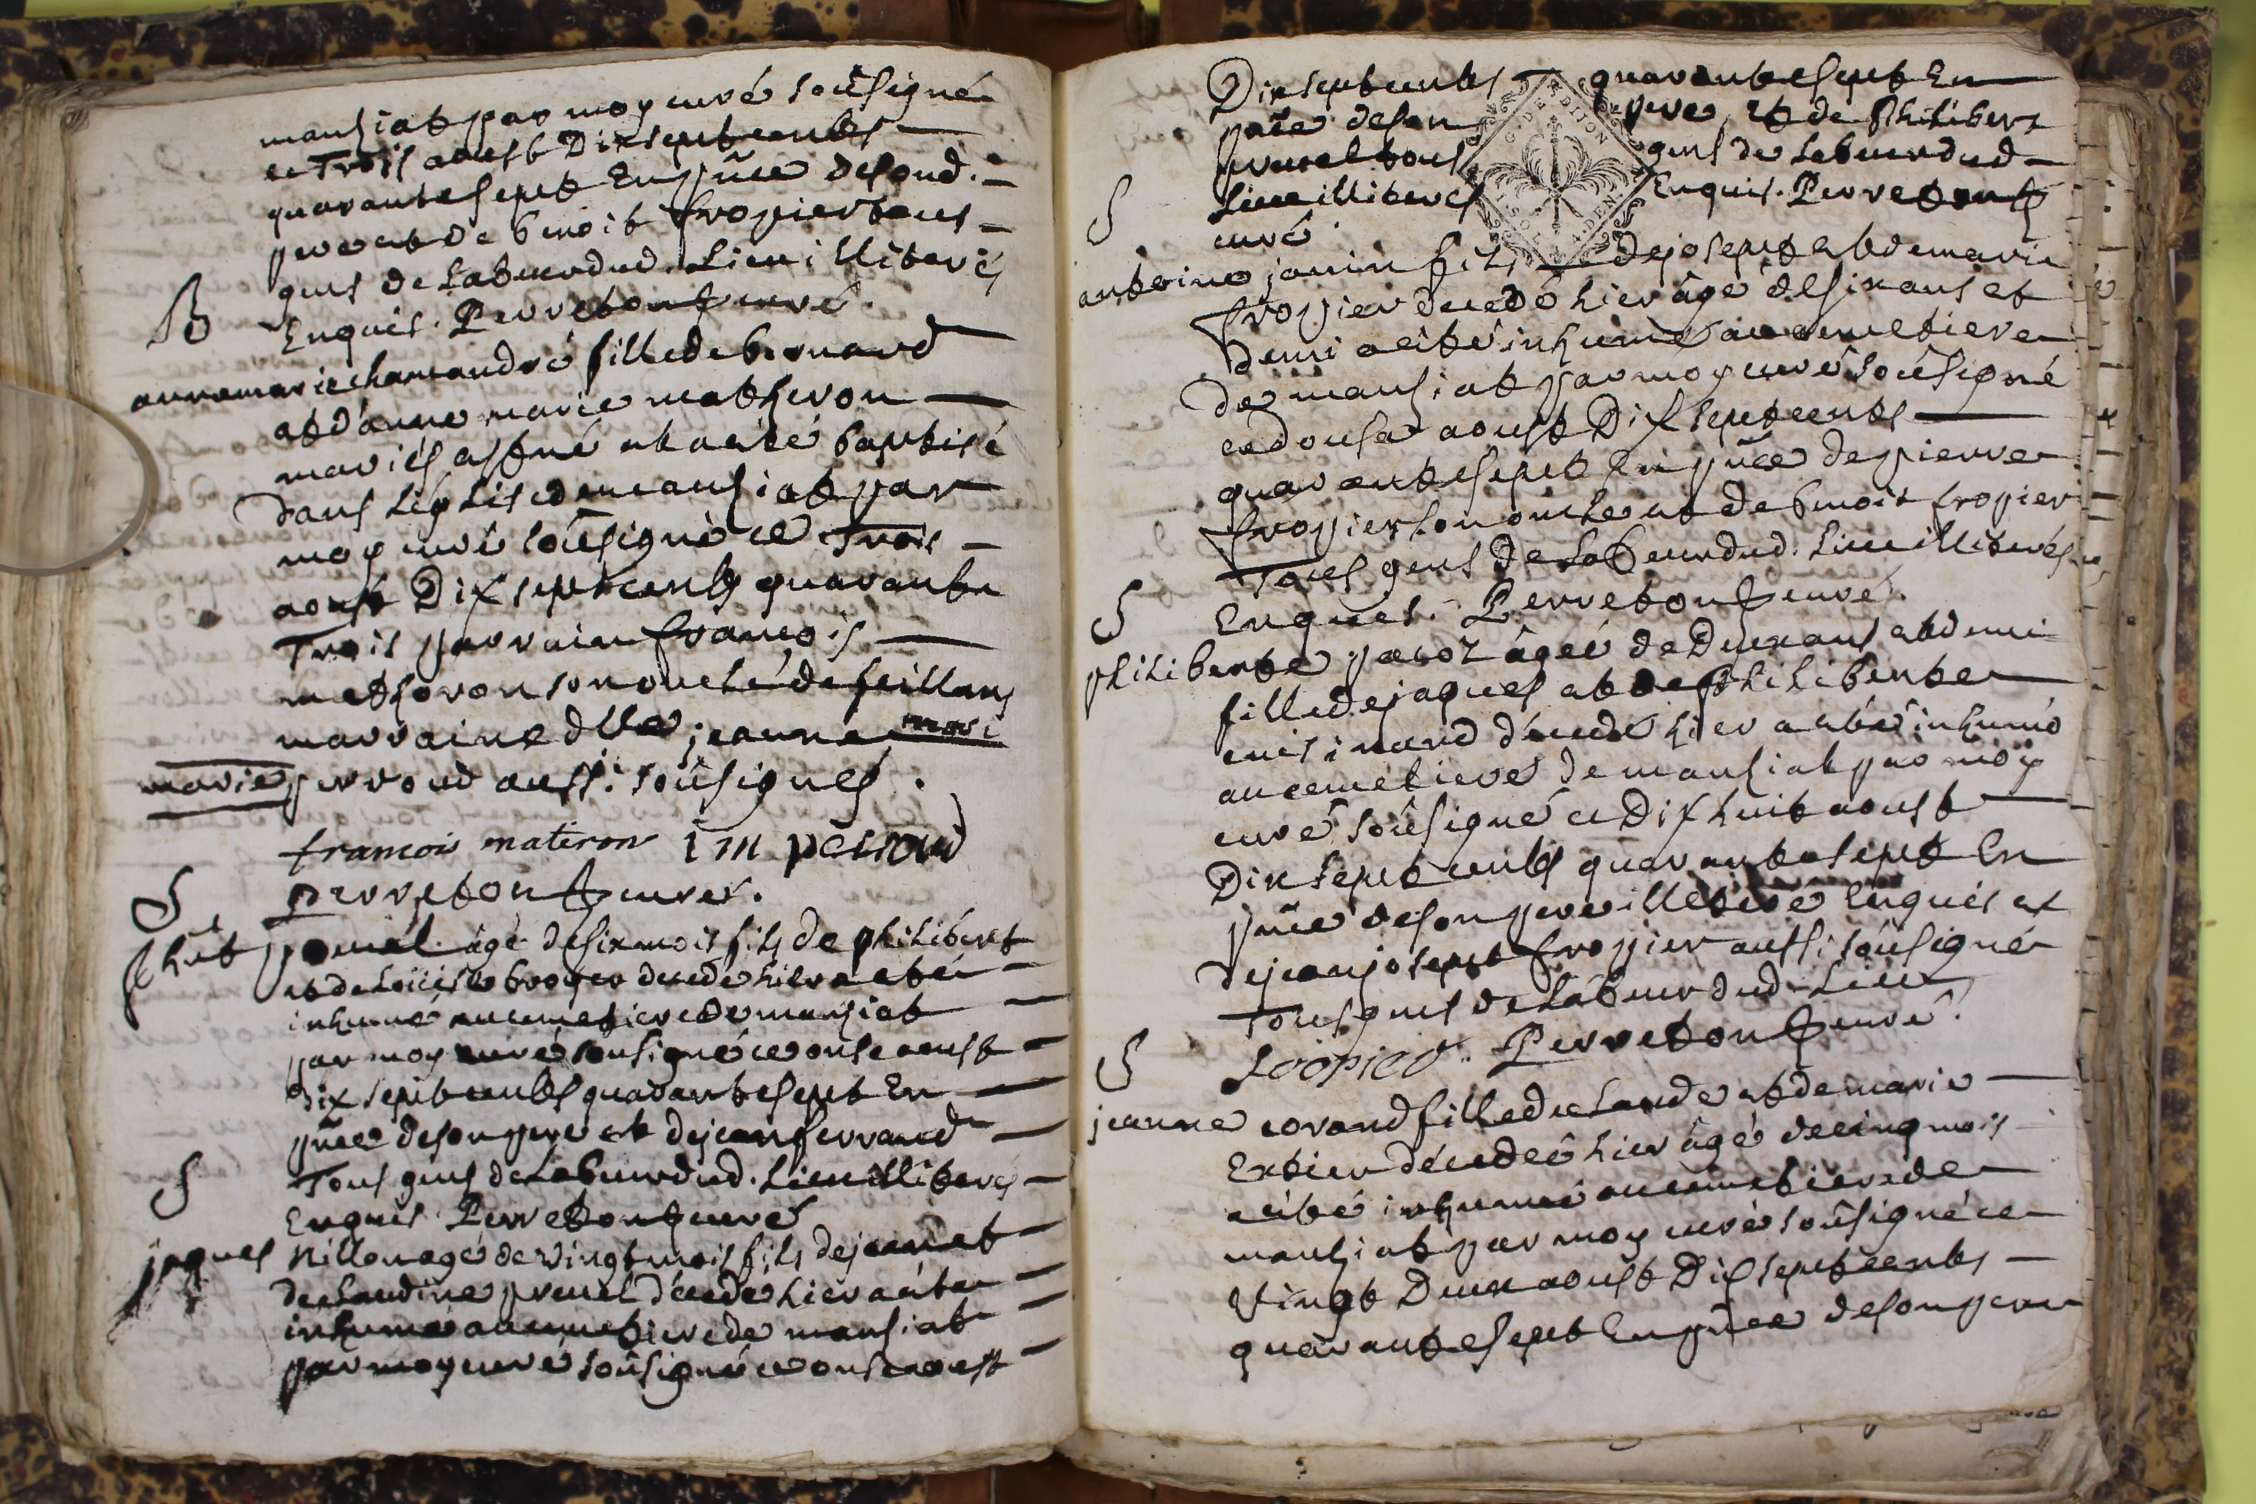 manziat par moy curé soûsigné
ce trois aoust Dix sept cents
quarante sept En pñce de sond.
pere et de benoit fropier tous
gens de Laditte. Lieu illiterés
Enquis. Perreton curé.
B
anne marie chamandré fille de bernard
et d'anne marie matheron
mariés est né et a été baptisé
dans l'église de manziat par
moy curé soûsigné ce trois
aoust Dix sept cents quarante
Trois parrain françois
matheron son oncle de feillens
marraine dlle jeanne mari
marie perroud aussi soûsignés.
francois materon i m peroud
perreton curé.
S
phibt pouel âgé de six mois fils de philibert
et de Loüise broyer decedé hier a eté
inhumé au cemetiere de manziat
par moy curé sousigné ce onse aoust
Dix sept cents quarante sept En
pñce de son pere et de jean ferrand
Tous gens de Lieu illiterés
Enquis Perreton curé
S
jaques Nillon agé de vingt mois fils de jean et
de claudine pruel décedé hier a été
inhumé au cemetiere de manziat
par moy curé soûsigné ce onse aoust
Dix sept cents quarante sept En
pñce de son pere et de Philibert
pruel tous gens de
Lieu illiterés Enquis. Perreton
curé
G. DE DITON
S
antoine janin fils de josept et de marie
fropier decedé hier âgé de six ans et
demi a été inhumé au cemetiere
de manziat par moy curé soûsigné
ce douse aoust Dix sept cents
quarante sept En pñce de pierre
fropier son oncle et de benoit fropier
Tous gens de Lieu illiterés
Enquis. Perreton curé.
S
philiberte pacoz âgée de Deux ans et demi
fille de jaques et de philiberte
cuisinard décedé hier a été inhumé
au cemetiere de manziat par moy
curé soûsigné ce Dix huit aoust
Dix sept cents quarante sept En
pñce de son pere illetéré Enquis et
de jean josept fropier aussi soûsigné
Tous gens de Lieu
fropier. Perreton curé.
S
jeanne corand fille de claude et de marie
décedée hier âgé de cinq mois
a été inhumé au cemetiere de
manziat par moy curé soûsigné ce
Vingt Deux aoust Dix sept cents
quarante sept En pñce de son pere